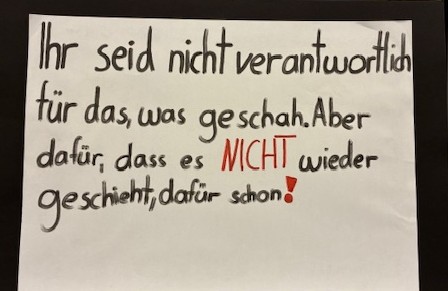 Ihr seid nicht verantwortlich
für das, was geschah. Aber
dafür, dass es NICHT wieder
geschieht, dafür schon!